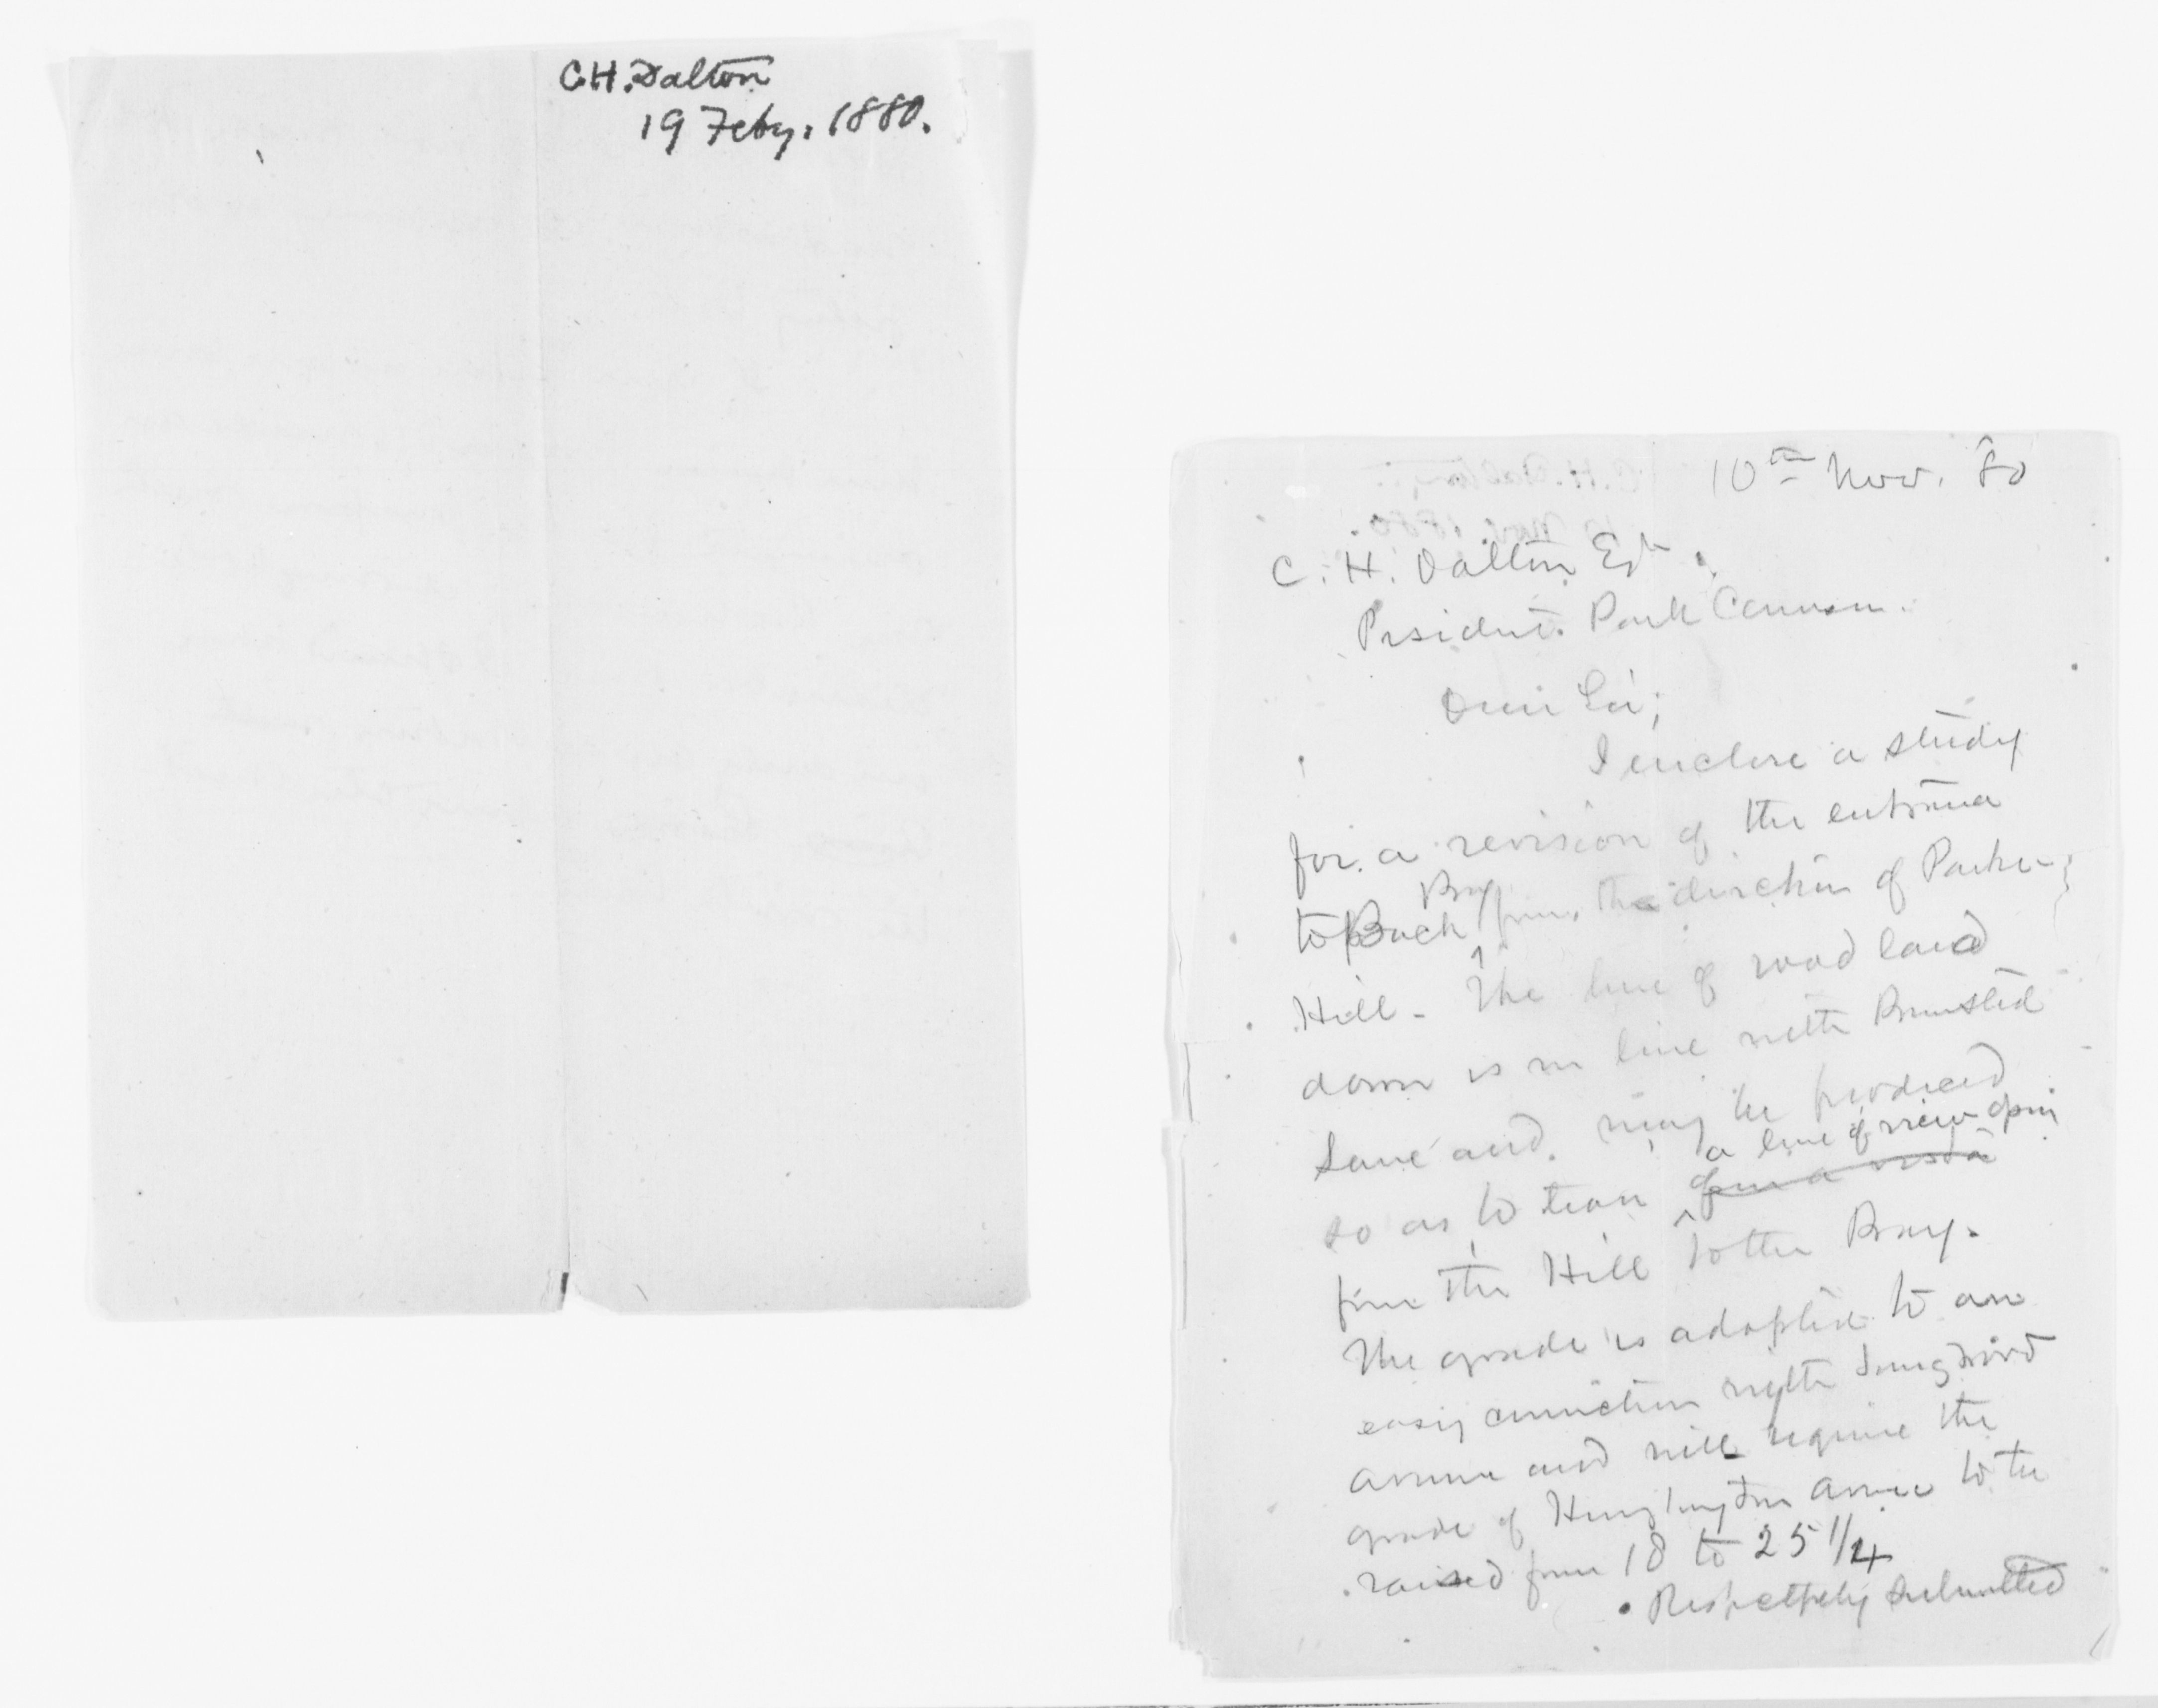 C.H. Dalton
19 Feby. 1880.
10th Nov. 80
C. H. Dalton Esq.
President. Park Commsn.
Dear Sir;
I enclose a study
for a revision of the entrance
to Back Bay from the direction of Parker
Hill. The line of road laid
down is in line with Bumstead
Lane and may be produced
a line of view open
so as to leave open a vista
from the Hill to the Bay.
The grade is adapted to an
easy connection with Longwood
Avenue and will require the
grade of Huntington Avenue to be
raised from 18 to 25 1/4
Respectfully submitted